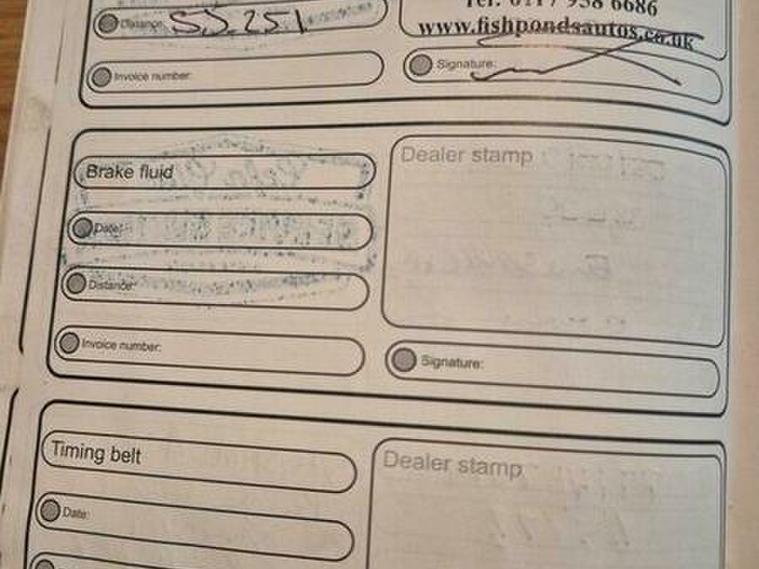 Tel: 0117 958 6686
Distance: 55,251
www.fishpondsautos.co.uk
Invoice number:
Signature:
Brake fluid
Dealer stamp
Date:
Distance:
Invoice number:
Signature:
Timing belt
Dealer stamp
Date: